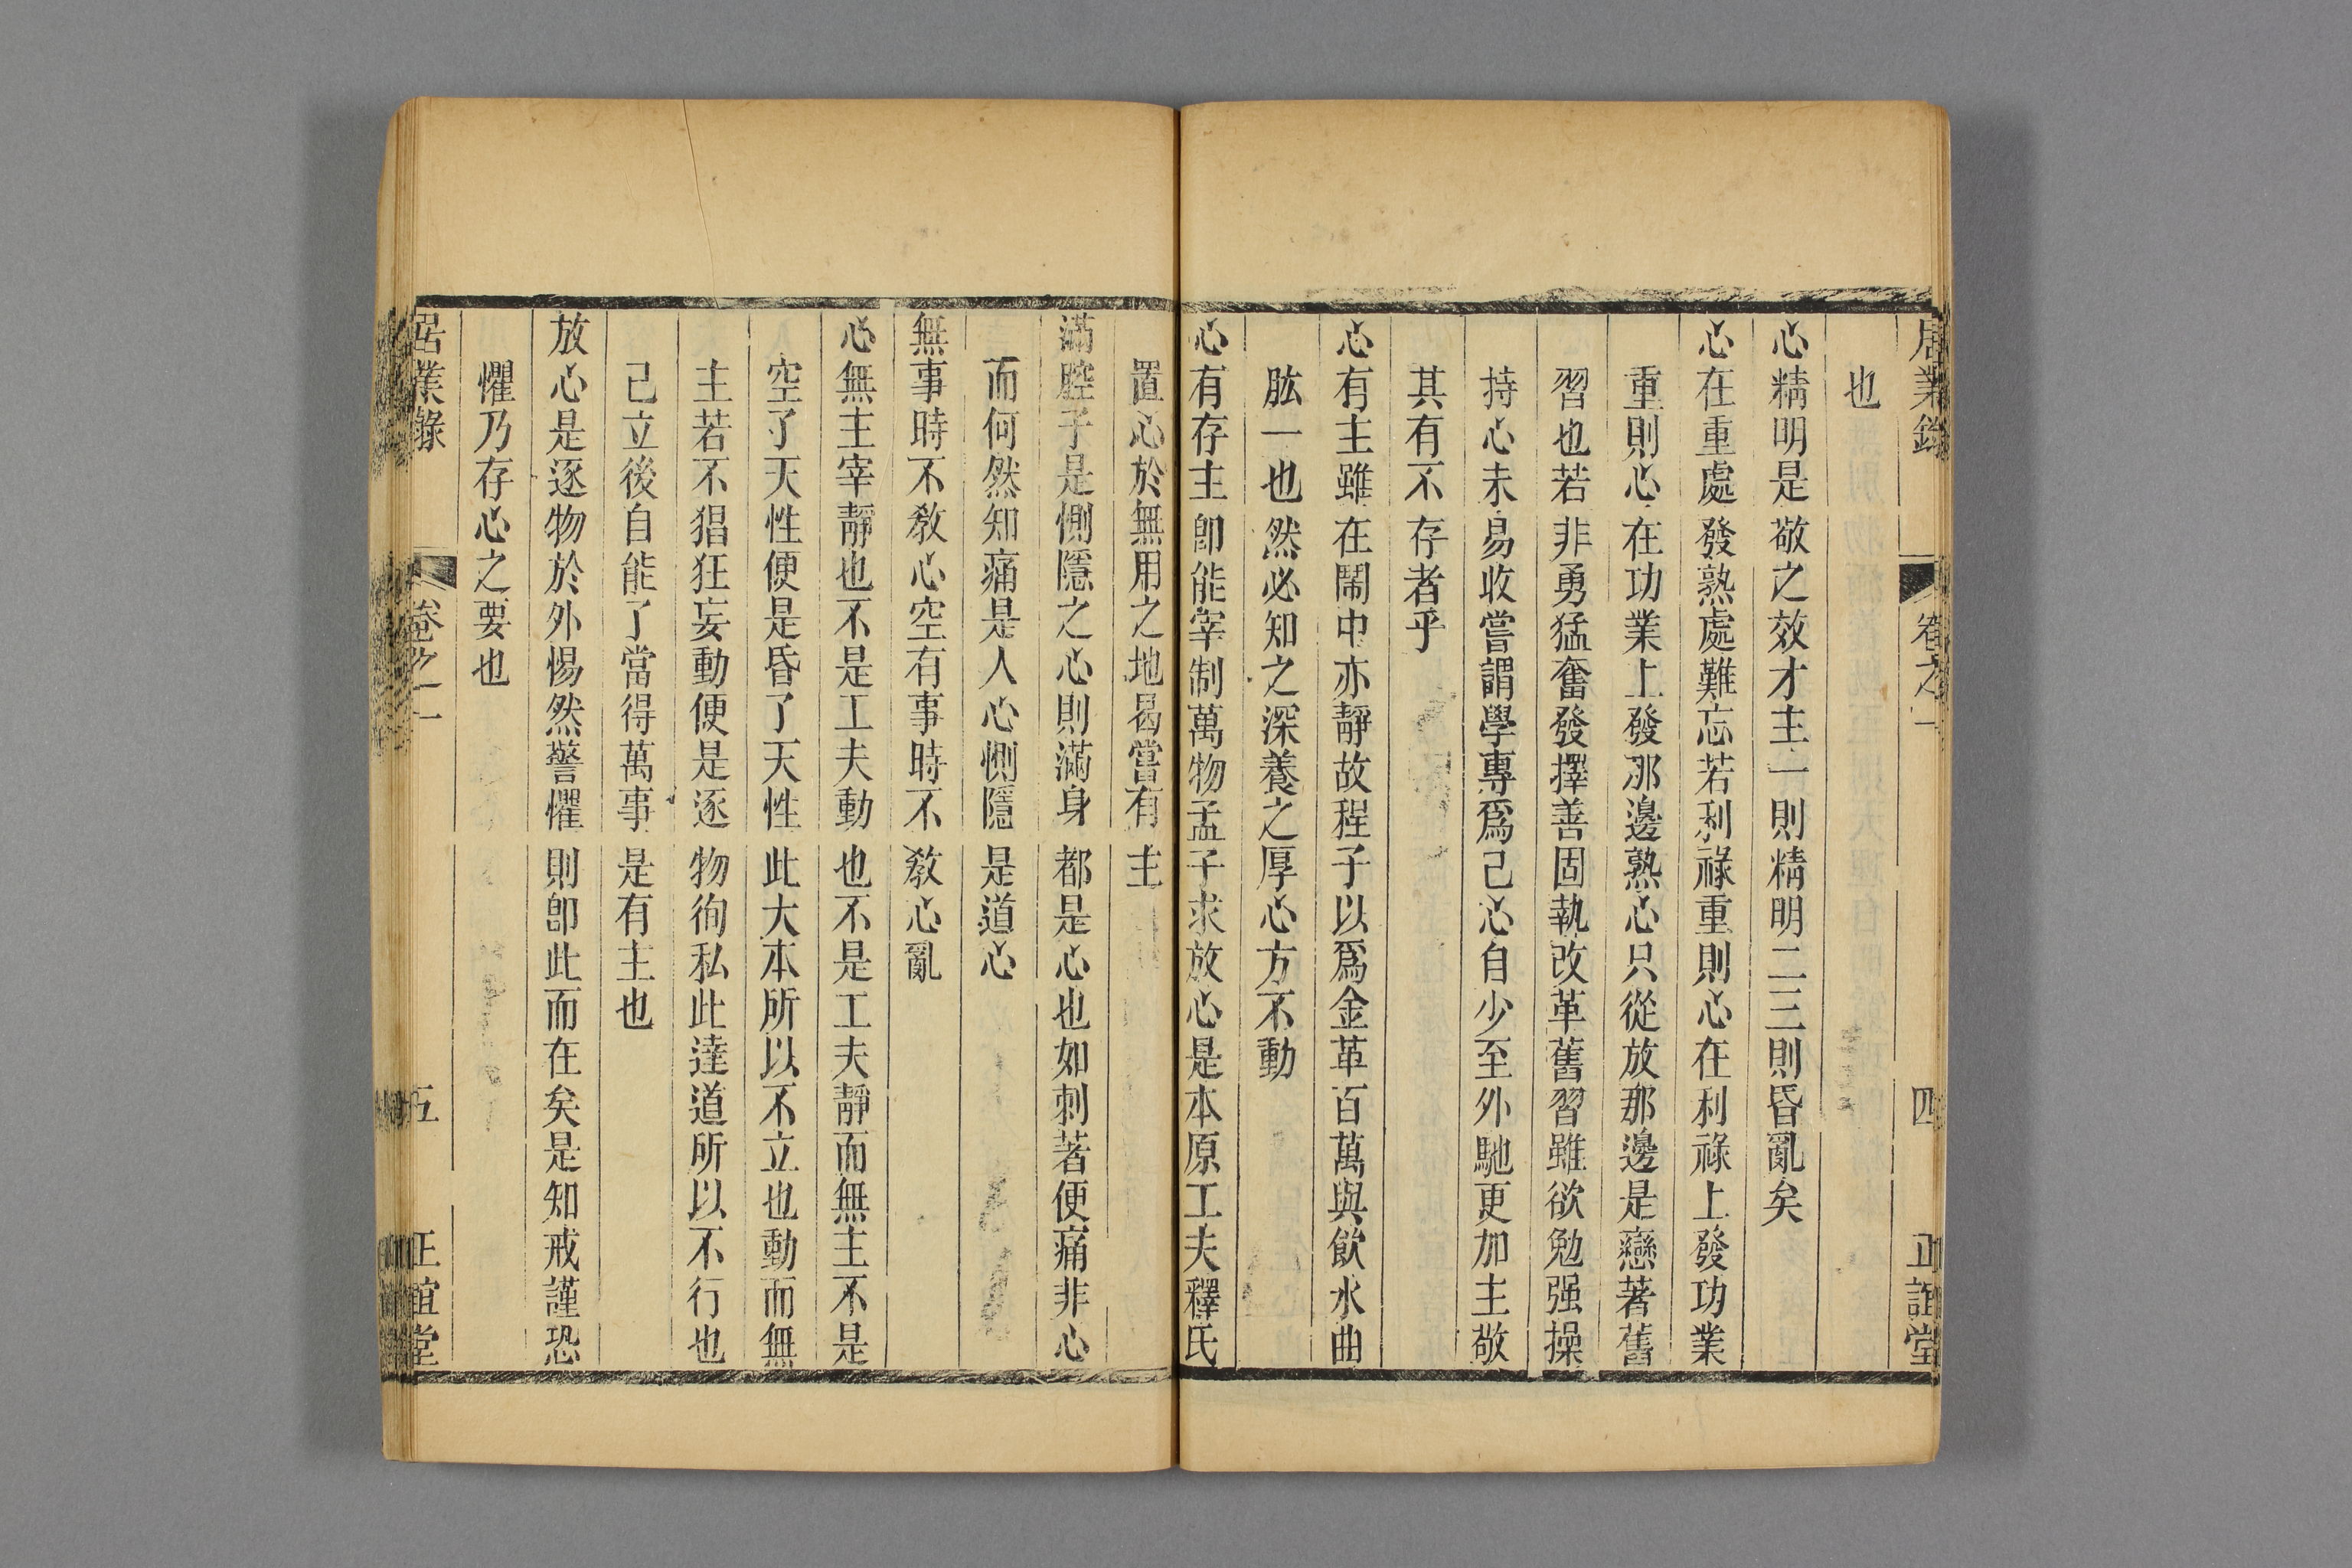 居業錄 卷之一 四 正誼堂
也
心精明是敬之效才主一則精明二三則昏亂矣
心在重處發熟處難忘若利祿重則心在利祿上發功業
重則心在功業上發那邊熟心只從放那邊是戀著舊
習也若非勇猛奮發擇善固執改革舊習雖欲勉强操
持心未易收嘗謂學專爲己心自少至外馳更加主敬
其有不存者乎
心有主雖在鬧中亦靜故程子以爲金革百萬與飲水曲
肱一也然必知之深養之厚心方不動
心有存主卽能宰制萬物孟子求放心是本原工夫釋氏
置心於無用之地曷當有主
滿腔子是惻隱之心則滿身都是心也如刺著便痛非心
而何然知痛是人心惻隱是道心
無事時不敎心空有事時不敎心亂
心無主宰靜也不是工夫動也不是工夫靜而無主不是
空了天性便是昏了天性此大本所以不立也動而無
主若不猖狂妄動便是逐物徇私此達道所以不行也
己立後自能了當得萬事是有主也
放心是逐物於外惕然警懼則卽此而在矣是知戒謹恐
懼乃存心之要也
居業錄 卷之一 五 正誼堂